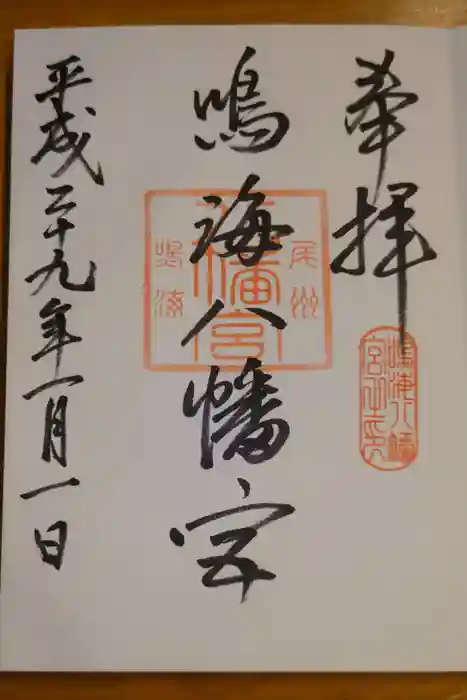 奉拝
鳴海八幡
宮之印
鳴海八幡宮
尾州
八幡宮
鳴海
平成二十九年一月一日